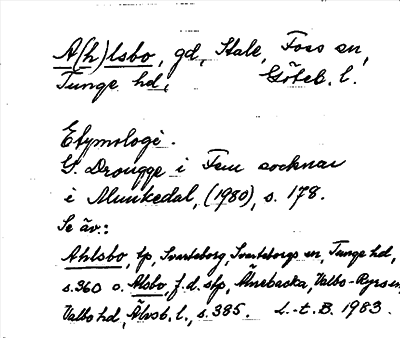 A(h)lsbo, gd, Stale, Foss sn,
Tunge hd, Göteb. l.
Etymologi.
G. Drougge i Fem socknar
i Munkedal, (1980), s. 178.
Se äv.:
Ahlsbo, tp, Svarteborg, Svarteborgs sn, Tunge hd,
s. 360 o. Alsbo, f.d. stp, Änebacka, Valbo-Ryrs sn,
Valbo hd, Älvsb. l., s. 385. L.-t. B. 1983.